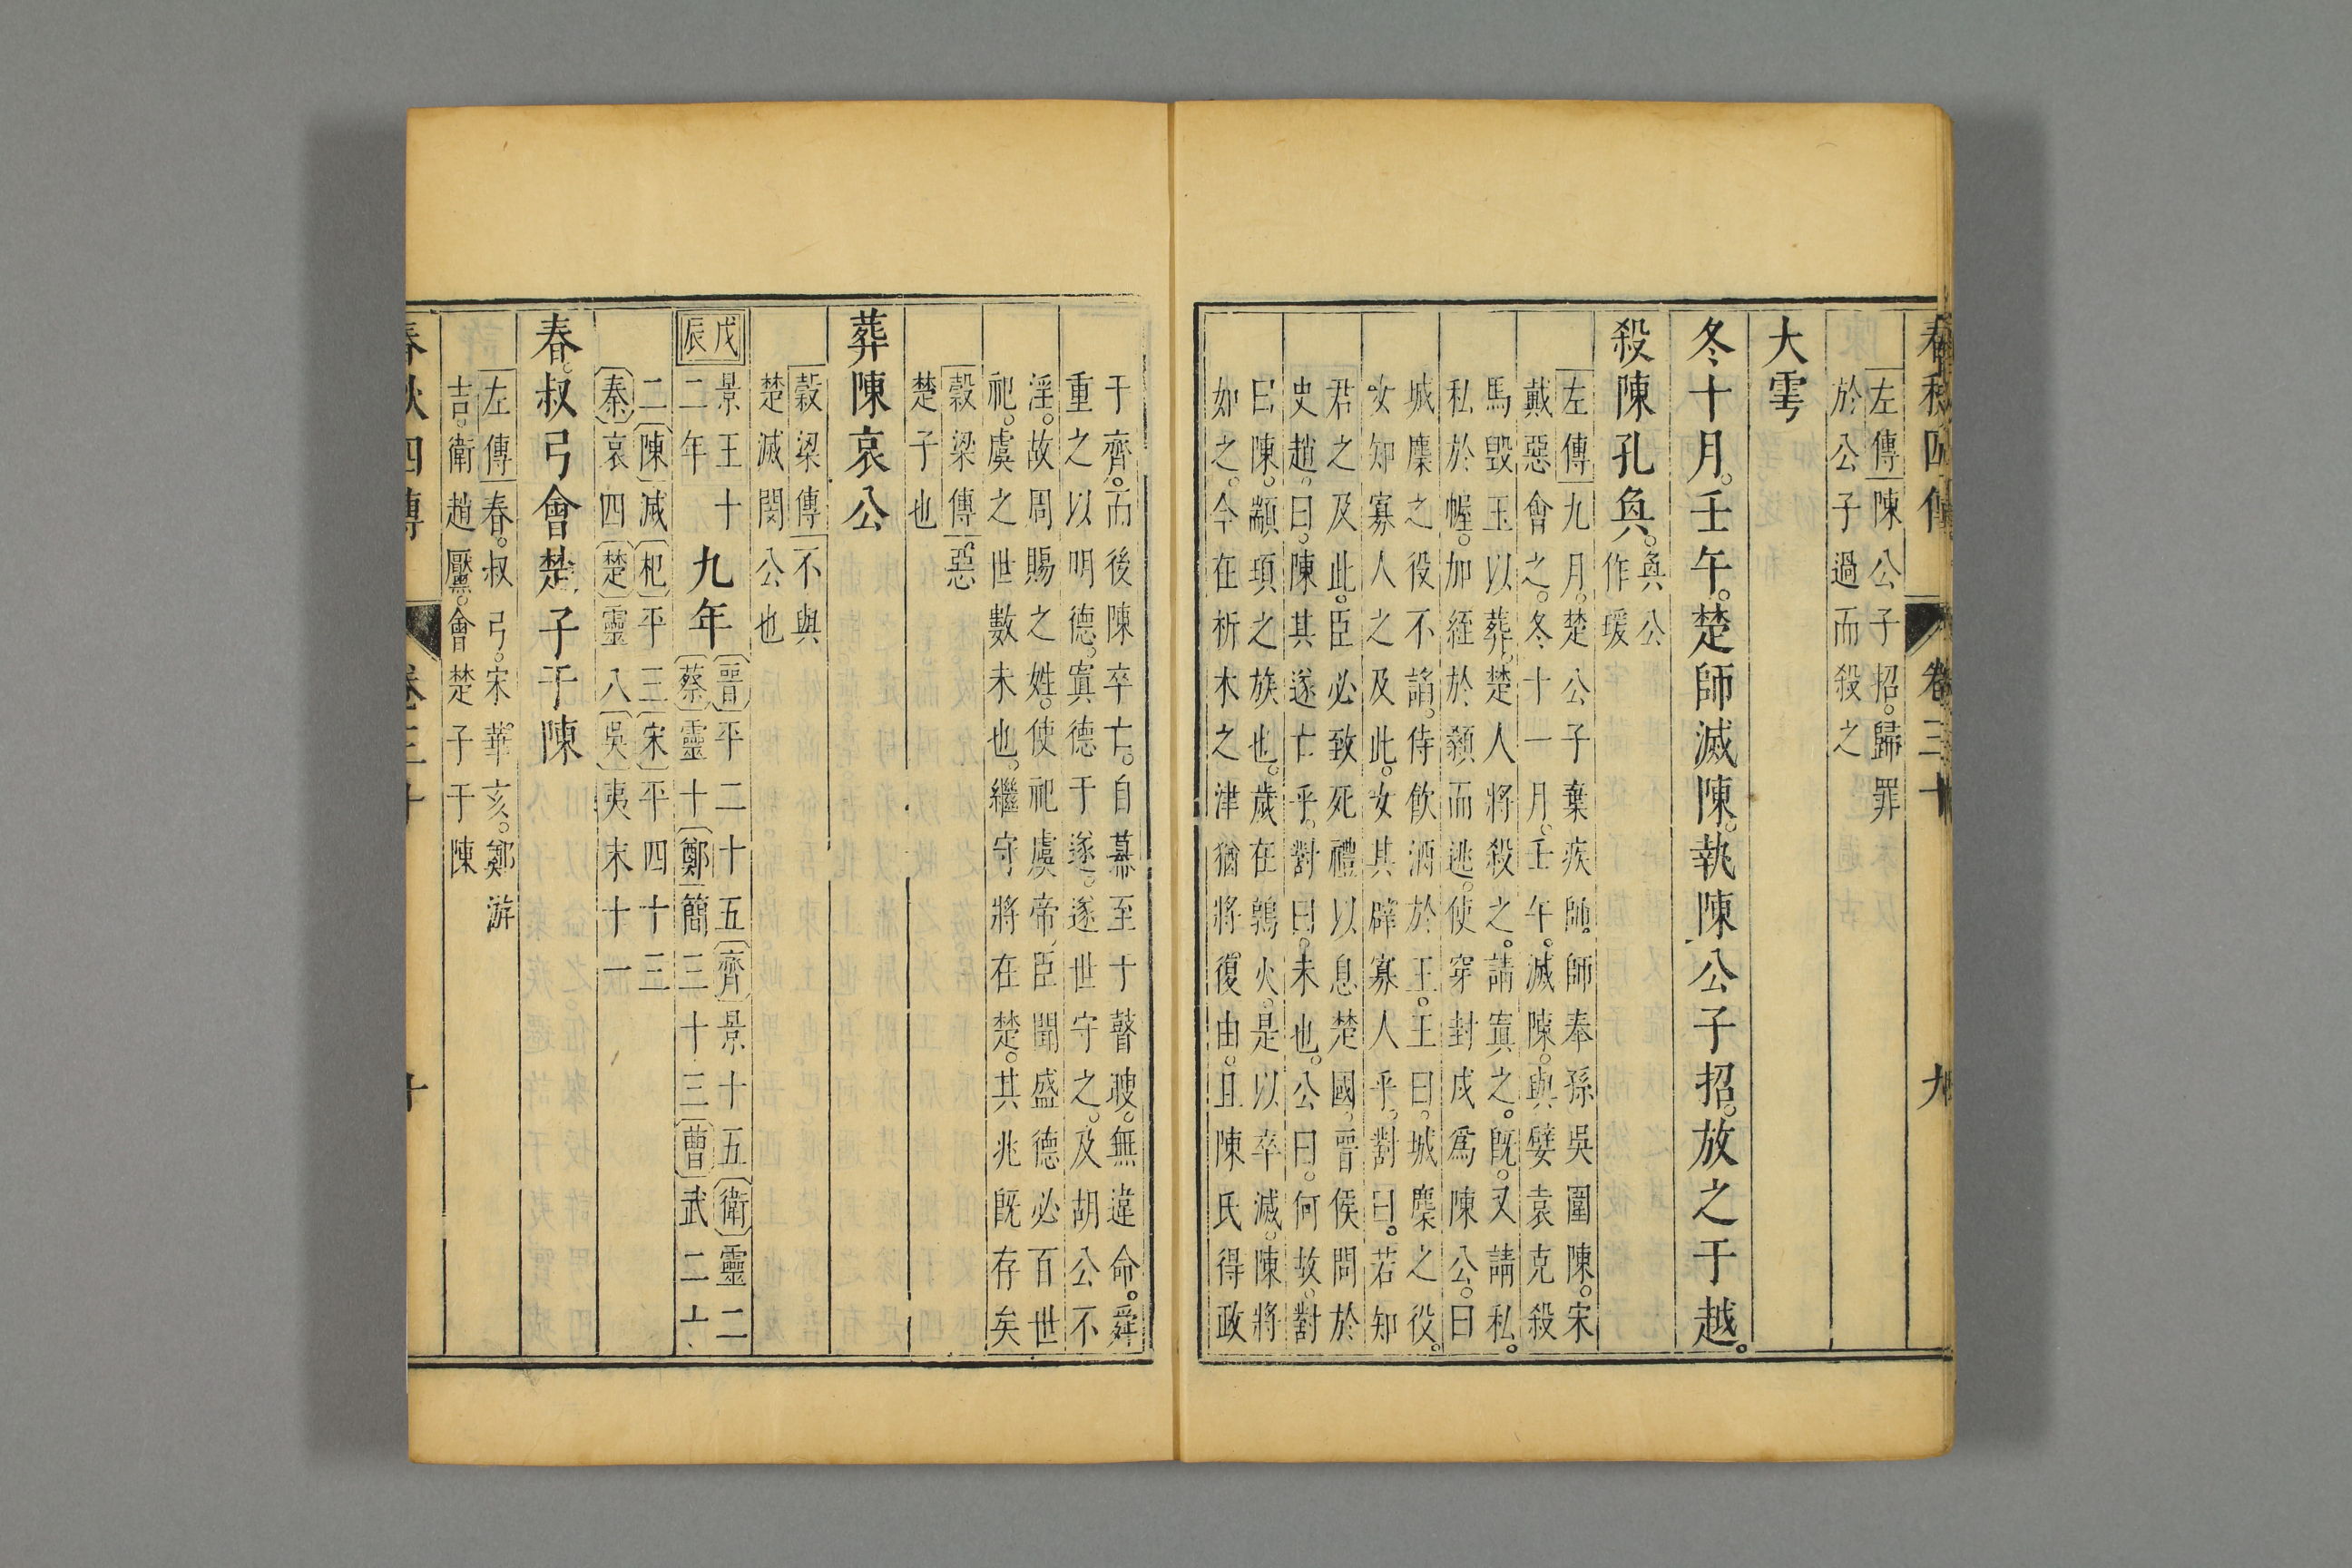 春秋四傳 卷三十 九
左傳陳公子招歸罪
於公子過而殺之
大雩
冬十月。壬午。楚師滅陳。執陳公子招。放之于越。
殺陳孔奐。奐公
作瑗
左傳九月。楚公子棄疾帥師奉孫吳圍陳。宋
戴惡會之。冬十一月。壬午。滅陳。與嬖袁克殺
馬毀玉以葬。楚人將殺之。請寘之。既。又請私。
私於幄。加絰於顙而逃。使穿封戌爲陳公。曰
城麇之役不諂。侍飲酒於王。王曰。城麇之役。
女知寡人之及此。女其辟寡人乎。對曰。若知
君之及此。臣必致死禮以息楚國。晉侯問於
史趙。曰。陳其遂亡乎。對曰。未也。公曰。何故。對
曰。陳。顓頊之族也。歲在鶉火。是以卒滅。陳將
如之。今在析木之津。猶將復由。且陳氏得政
于齊。而後陳卒亡。自幕至于瞽瞍。無違命。舜
重之以明德。寘德于遂。遂世守之。及胡公不
淫。故周賜之姓。使祀虞帝。臣聞盛德必百世
祀。虞之世數未也。繼守將在楚。其兆既存矣
穀梁傳惡
楚子也
葬陳哀公
穀梁傳不與
楚滅閔公也
戊辰
景王十
二年
九年
晉平二十五齊景十五衛靈二
蔡靈十鄭簡三十三曹武二十
二陳滅杞平三宋平四十三
秦哀四楚靈八吳夷末十一
春。叔弓會楚子于陳
左傳春。叔弓。宋華亥。鄭游
吉。衛趙黶。會楚子于陳
春秋四傳 卷三十 十